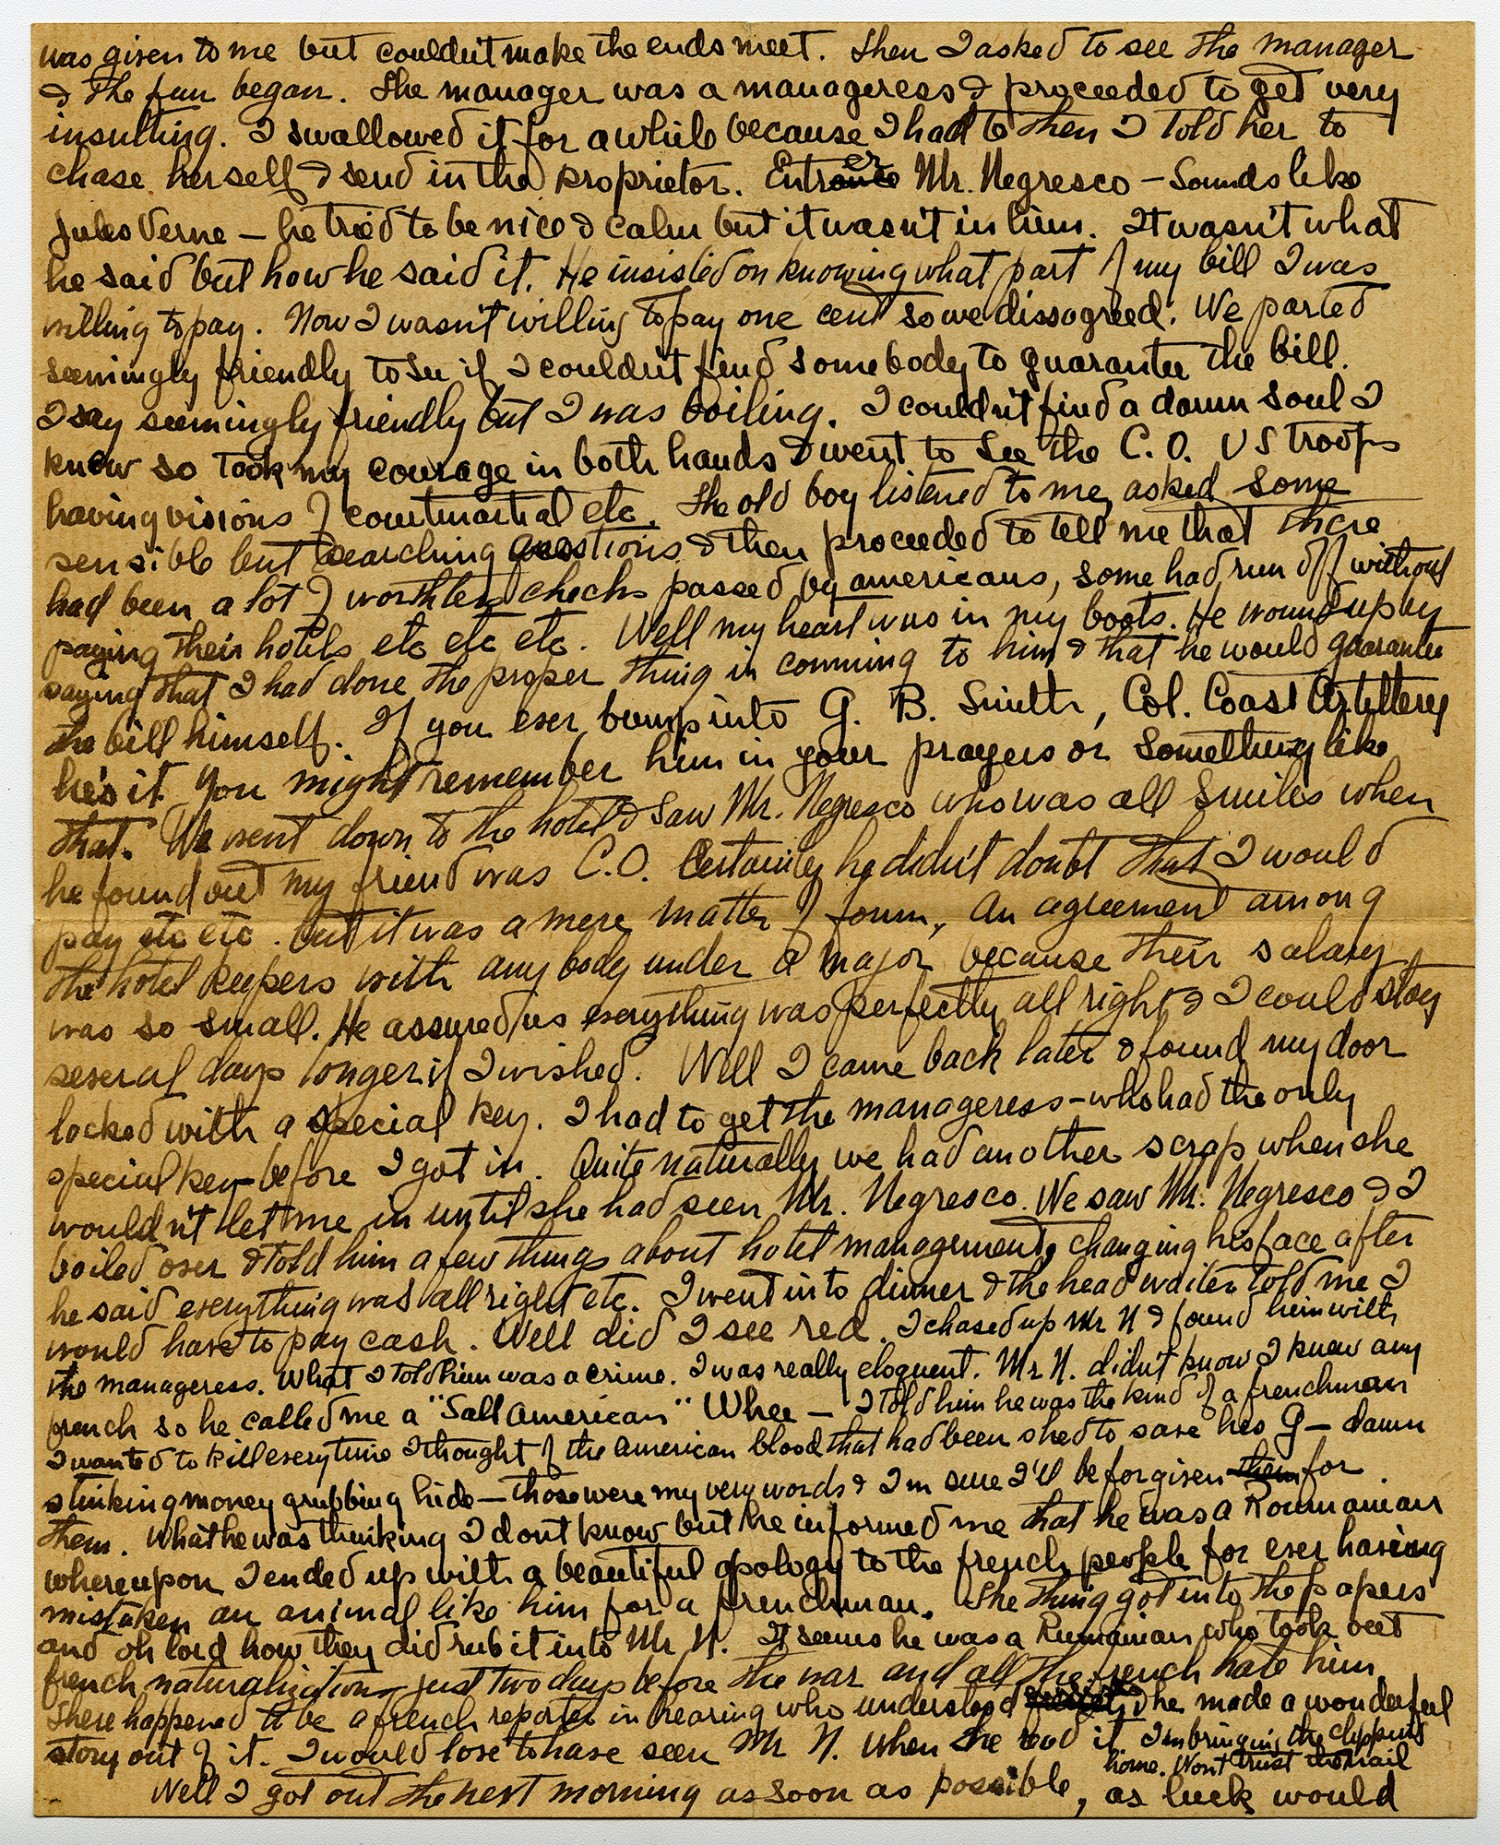 was given to me but couldn't make the ends meet. Then I asked to see the manager
& the fun began. The manager was a manageress & proceeded to get very
insulting. I swallowed it for a while because I had to then I told her to
chase herself & send in the proprietor. Enter Mr. Negresco — Sounds like
Jules Verne — he tried to be nice & calm but it wasn't in him. It wasn't what
he said but how he said it. He insisted on knowing what part of my bill I was
willing to pay. Now I wasn't willing to pay one cent so we dissagreed. We parted
seemingly friendly to see if I couldn't find somebody to guarantee the bill.
I say seemingly friendly but I was boiling. I couldn't find a damn soul I
knew so took my courage in both hands & went to see the C.O. US troops
having visions of courtmartial etc. The old boy listened to me, asked some
sensible but searching questions & then proceeded to tell me that there
had been a lot of worthless checks passed by americans, some had run off without
paying their hotels etc etc etc. Well my heart was in my boots. He wound up by
saying that I had done the proper thing in comming to him & that he would guarantee
the bill himself. If you ever bump into G. B. Smith, Col. Coast Artillery
he's it. You might remember him in your prayers or something like
that. We went down to the hotel & saw Mr. Negresco who was all smiles when
he found out my friend was C.O. Certainly he didn't doubt that I would
pay etc etc. but it was a mere matter of form, An agreement among
the hotel keepers with anybody under a Major because their salary
was so small. He assured us everything was perfectly all right & I could stay
several days longer if I wished. Well I came back later & found my door
locked with a special key. I had to get the manageress - who had the only
special key - before I got in. Quite naturally we had another scrap when she
wouldn't let me in until she had seen Mr. Negresco. We saw Mr. Negresco & I
boiled over & told him a few things about hotel management, changing his face after
he said everything was all right etc. I went into dinner & the head waiter told me I
would have to pay cash. Well did I see red. I chased up Mr N & found him with
the manageress. What I told him was a crime. I was really eloquent. Mr. N. didn't know I knew any
french so he called me a "Sall American" Whee — I told him he was the kind of a frenchman
I wanted to kill everytime I thought of the american blood that had been shed to save his G— damn
stinking money grubbing hide — those were my very words & I'm sure I'll be forgiven them for
them. What he was thinking I dont know but he informed me that he was a Roumanian
whereupon I ended up with a beautiful apology to the french people for ever having
mistaken an animal like him for a frenchman. The thing got into the papers
and oh lord how they did rub it into Mr N. It seems he was a Rumainian who took out
french naturalization just two days before the war and all the french hate him.
There happened to be a french reporter in hearing who understood & he made a wonderful
story out of it. I would love to have seen Mr N. when he read it. I'm bringing the clippings
home. Wont trust the mail
Well I got out the next morning as soon as possible, as luck would